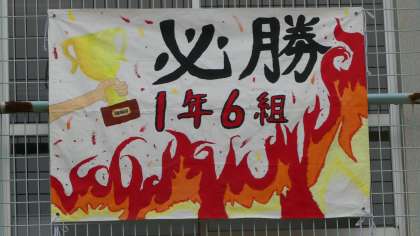 必勝
1年6組